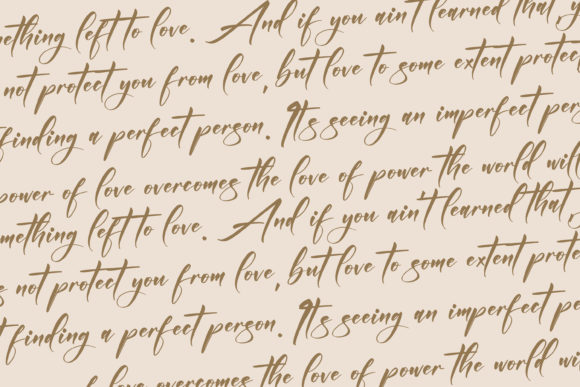 mething left to love. And if you ain't learned that, y
not protect you from love, but love to some extent protec
finding a perfect person. It's seeing an imperfect pers
power of love overcomes the love of power the world will
omething left to love. And if you ain't learned that,
s not protect you from love, but love to some extent prote
t finding a perfect person. It's seeing an imperfect pe
of love overcomes the love of power the world wi